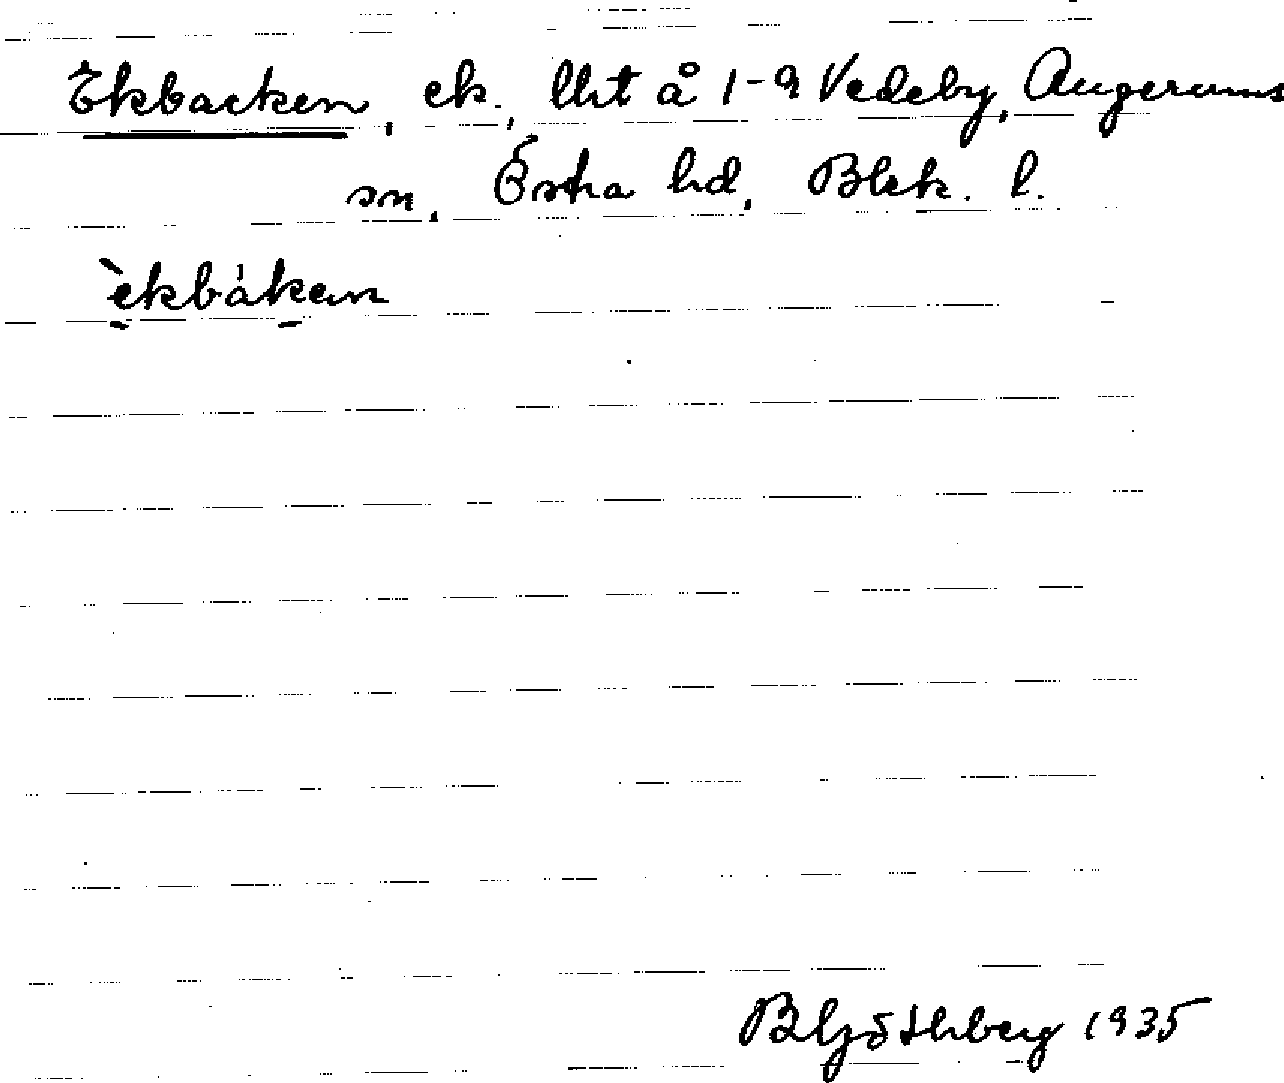 Ekbacken, ek., lht å 1-9 Vedeby, Augerums
sn, Östra hd, Blek. l.
èkbákan
B Ljöthberg 1935